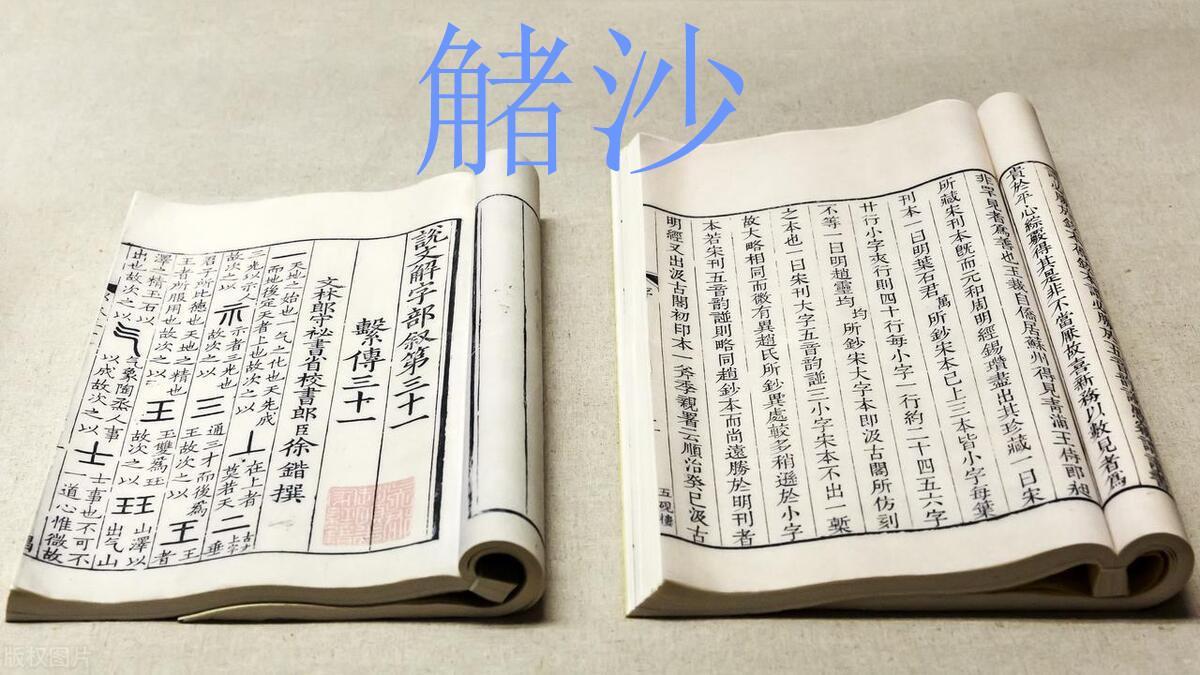 觰沙
說文解字部叙第三十一
繫傳三十一
文林郎守祕書省校書郎臣徐鍇撰
一天地之始也一气之化也天先成
而地後定天者上也故次之以
丄在上者
莫若天
二古文
上字
垂
三光以示人
故次之以
示示者三光也
故次之以
三通三才而後爲
王故次之以
王王者
君子所比德也天地之精也
王者所服用也故次之以
王王雙爲玨
故次之以
玨山澤以
出气山
澤之精玉石以
出也故次之以
气气象陶烝人事
以成故次之以
士士事也不可不
一道心惟微故
貴於平心綜覈得其是非不當厭故喜新務以數見者爲
非罕見者爲善也玉裁自僑居蘇州得見靑浦王侍郎昶
所藏宋刊本既而元和周明經錫瓚盡出其珍藏一曰宋
刊本一曰明葉石君萬所鈔宋本已上三本皆小字每葉
廿行小字夾行則四十行每小字一行約二十四五六字
不等一曰明趙靈均均所鈔宋大字本即汲古閣所仿刻
之本也一曰宋刊大字五音韵譜三小字宋本不出一槧
故大略相同而微有異趙氏所鈔異處較多稍遜於小字
本若宋刊五音韵譜則略同趙鈔本而尚遠勝於明刊者
明經又出汲古閣初印本一斧季親署云順治癸巳汲古
五硯樓
版权图片